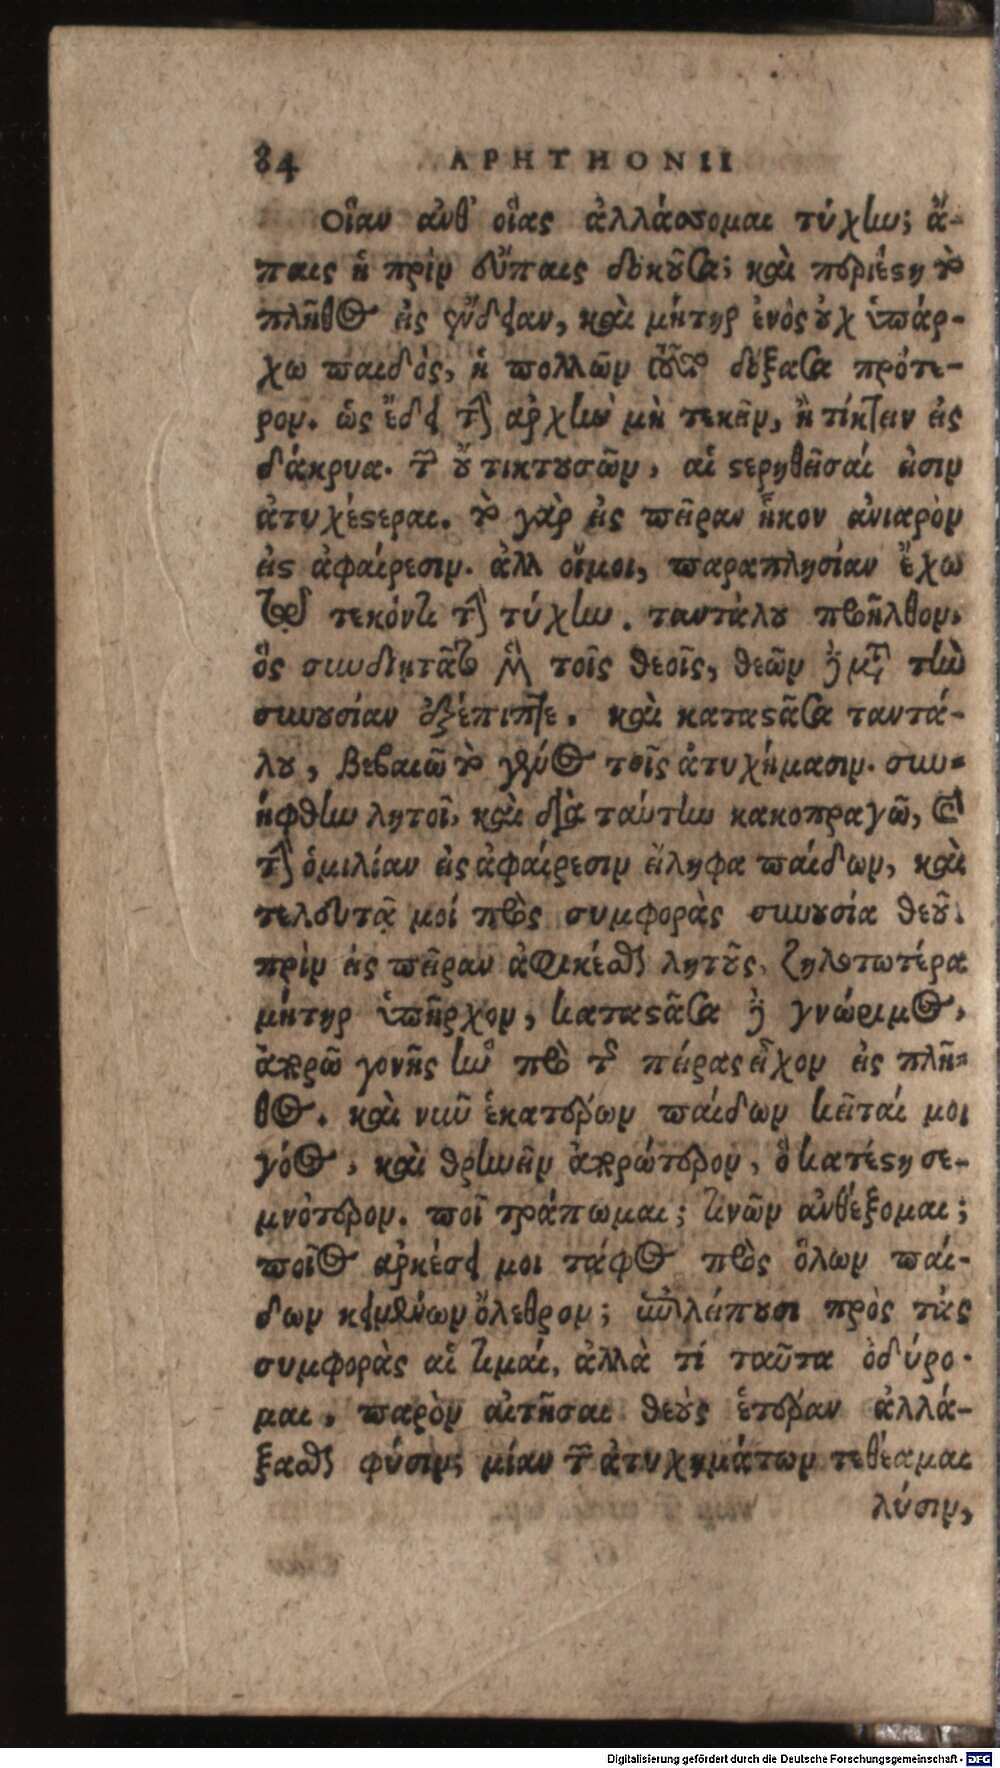 84 APHTHONII
Οἵαν ἀνθ' οἵας ἀλλάσσομαι τύχην; ἄ-
παις ἡ πρὶν εὔπαις δοκοῦσα; καὶ περιέστη τὸ
πλῆθος εἰς ἔνδειαν, καὶ μήτηρ ἑνὸς οὐχ ὑπάρ-
χω παιδὸς, ἡ πολλῶν τοῦτο δόξασα πρότε-
ρον. ὡς ἔδει τὴν ἀρχὴν μὴ τεκεῖν, ἢ τίκτειν εἰς
δάκρυα. τῶν οὐ τικτουσῶν, αἱ στερηθεῖσαί εἰσιν
ἀτυχέστεραι. τὸ γὰρ εἰς πεῖραν ἧκον ἀνιαρὸν
εἰς ἀφαίρεσιν. ἀλλ οἴμοι, παραπλησίαν ἔχω
τῷ τεκόντι τὴν τύχην. ταντάλου προῆλθον,
ὃς συνδιῃτᾶτο μὲν τοῖς θεοῖς, θεῶν δὲ μετὰ τὴν
συνουσίαν ἐξέπιπτε. καὶ καταστᾶσα ταντά-
λου, βεβαιῶ τὸ γένος τοῖς ἀτυχήμασιν. συν-
ήφθην λητοῖ, καὶ διὰ ταύτην κακοπραγῶ, καὶ
τὴν ὁμιλίαν εἰς ἀφαίρεσιν εἴληφα παίδων, καὶ
τελευτᾷ μοί πρὸς συμφορὰς συνουσία θεοῦ.
πρὶν εἰς πεῖραν ἀφικέσθαι λητοῦς, ζηλοτωτέρα
μήτηρ ὑπῆρχον, καταστᾶσα δὲ γνώριμος,
ἀπορῶ γονῆς ἣν πρὸ τοῦ πείρας εἶχον εἰς πλῆ-
θος. καὶ νῦν ἑκατέρων παίδων κεῖταί μοι
γόος, καὶ θρηνεῖν ἀπορώτερον, ὃ κατέστη σε-
μνότερον. ποῖ τράπωμαι; τίνων ἀνθέξομαι;
ποῖος ἀρκέσει μοι τάφος πρὸς ὅλων παί-
δων κειμένων ὄλεθρον; ἐπιλείπουσι πρὸς τὰς
συμφορὰς αἱ τιμαί. ἀλλὰ τί ταῦτα ὀδύρο-
μαι, παρὸν αἰτῆσαι θεοὺς ἑτέραν ἀλλά-
ξασθαι φύσιν; μίαν τῶν ἀτυχημάτων τεθέαμαι
λύσιν,
Digitalisierung gefördert durch die Deutsche Forschungsgemeinschaft - DFG